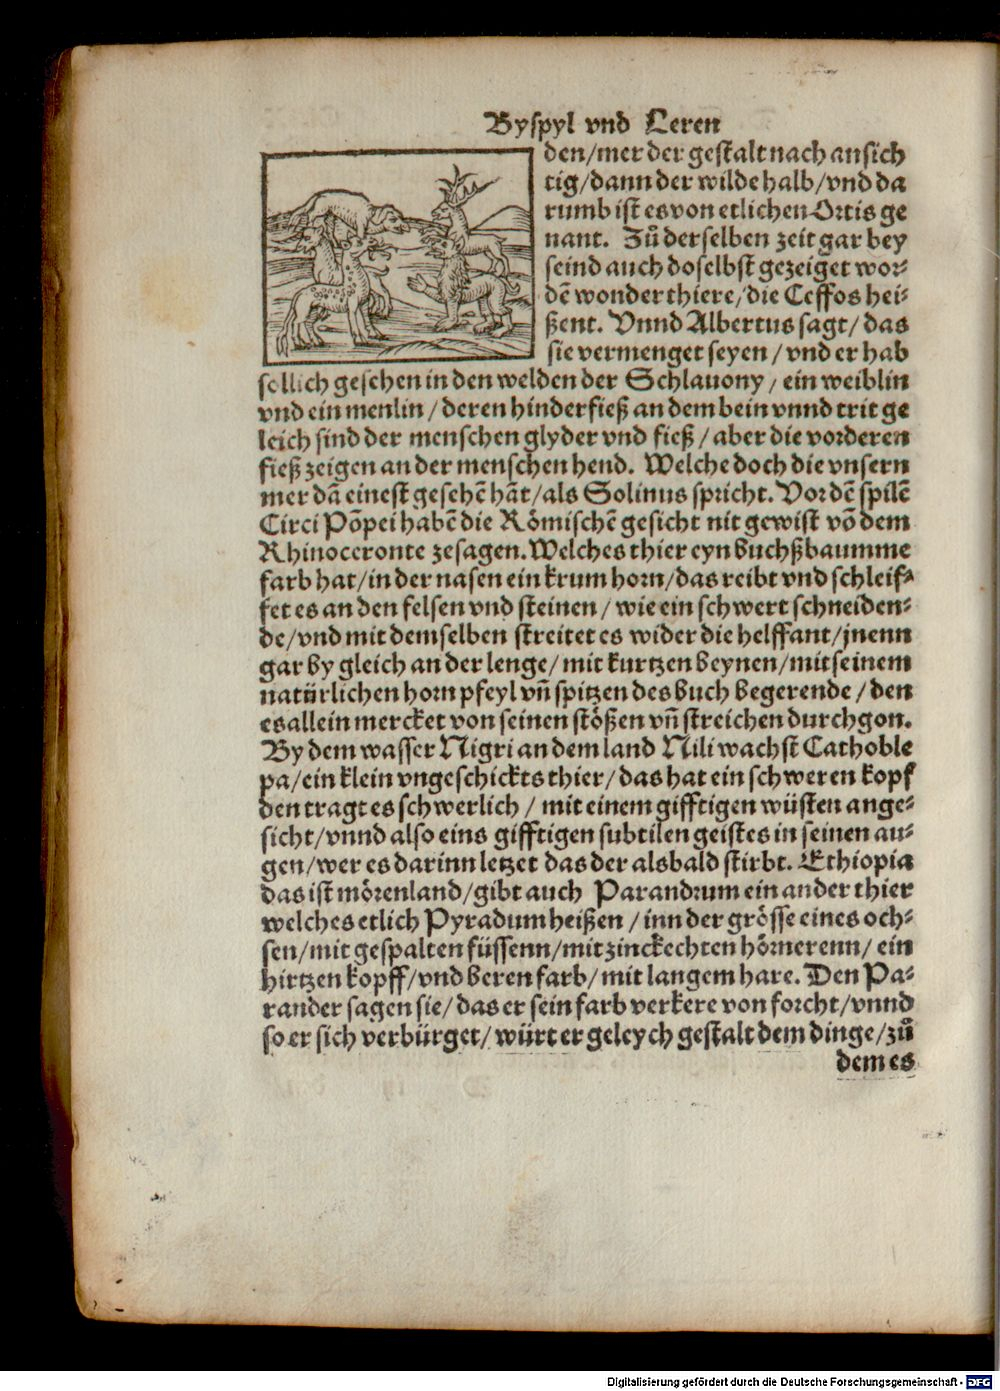 Byspyl vnd Leren
den/mer der gestalt nach ansich
tig/dann der wilde halb/vnd da
rumb ist es von etlichen Ortis ge
nant. Zů derselben zeit gar bey
seind auch doselbst gezeiget wor⸗
dē wonder thiere/die Ceffos hei⸗
ßent. Vnnd Albertus sagt/das
sie vermenget seyen/vnd er hab
sollich gesehen in den welden der Schlauony/ein weiblin
vnd ein menlin/deren hinderfieß an dem bein vnnd trit ge
leich sind der menschen glyder vnd fieß/aber die vorderen
fieß zeigen an der menschen hend. Welche doch die vnsern
mer dā einest gesehē hāt/als Solinus spricht. Vor dē spilē
Circi Pōpei habē die Römischē gesicht nit gewist vō dem
Rhinoceronte zesagen. Welches thier eyn buchßbaumme
farb hat/in der nasen ein krum horn/das reibt vnd schleif⸗
fet es an den felsen vnd steinen/wie ein schwert schneiden⸗
de/vnd mit demselben streitet es wider die helffant/jnenn
gar by gleich an der lenge/mit kurtzen beynen/mit seinem
natürlichen horn pfeyl vñ spitzen des buch begerende/den
es allein mercket von seinen stößen vñ streichen durchgon.
By dem wasser Nigri an dem land Nili wachst Cathoble
pa/ein klein vngeschickts thier/das hat ein schweren kopf
den tragt es schwerlich/mit einem gifftigen wüsten ange⸗
sicht/vnnd also eins gifftigen subtilen geistes in seinen au⸗
gen/wer es darinn letzet das der alsbald stirbt. Ethiopia
das ist mörenland/gibt auch Parandrum ein ander thier
welches etlich Pyradum heißen/inn der grösse eines och⸗
sen/mit gespalten füssenn/mit zinckechten hörnerenn/ein
hirtzen kopff/vnd beren farb/mit langem hare. Den Pa⸗
rander sagen sie/das er sein farb verkere von forcht/vnnd
so er sich verbürget/würt er geleych gestalt dem dinge/zů
dem es
Digitalisierung gefördert durch die Deutsche Forschungsgemeinschaft - DFG